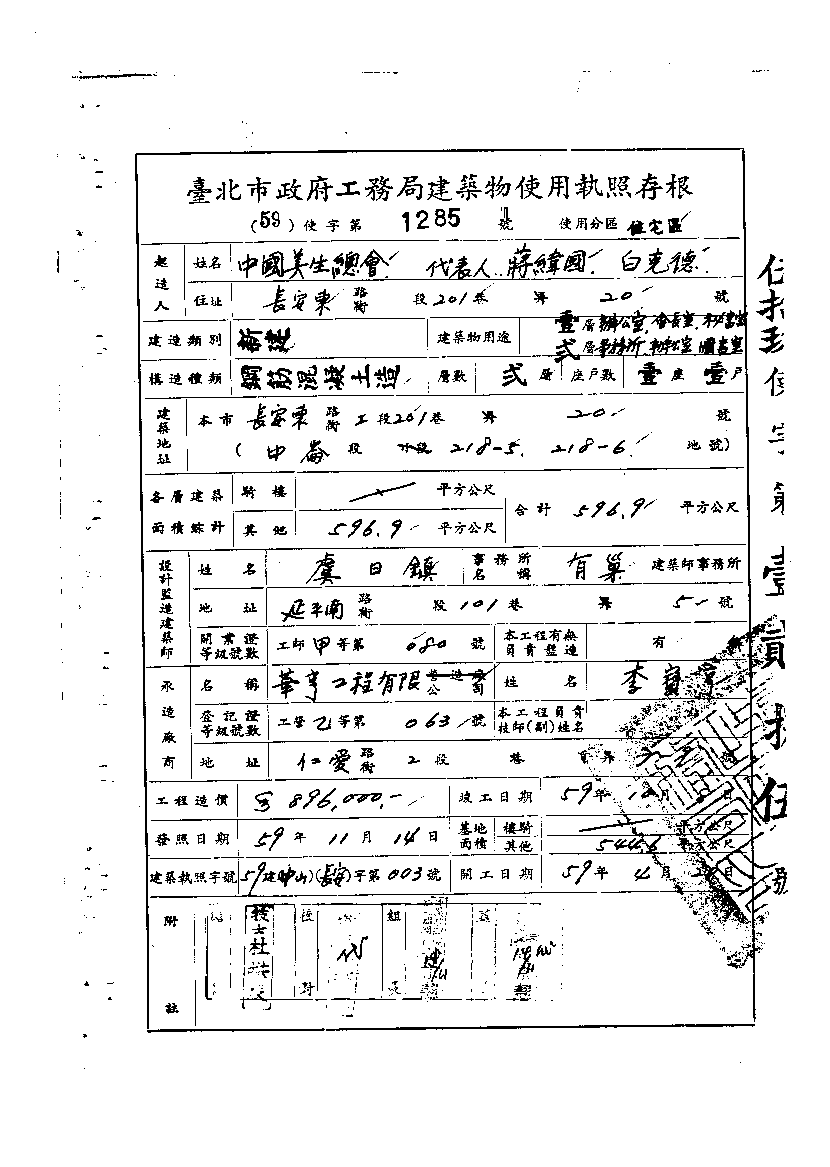 臺北市政府工務局建築物使用執照存根
(59)使字第 1285 號 使用分區 住宅區
起造人 姓名 中國美生總會 代表人 蔣緯國 白克德
住址 長安東路街 段201巷 弄 20 號
建造類別 新建 建築物用途 壹層辦公室、會長室、秘書室
貳層事務所、辦公室、圖書室
構造種類 鋼筋混凝土造 層數 貳層 座戶數 壹座 壹戶
建築地址 本市 長安東路街 段201巷 弄 20 號
(中崙 段 小段 218-5. 218-6. 地號)
各層建築面積綜計 騎樓 平方公尺 合計 596.9 平方公尺
其他 596.9 平方公尺
設計監造建築師 姓名 虞日鎮 事務所名稱 有巢 建築師事務所
地址 延平南路街 段101巷 弄 5 號
開業證等級號數 工師甲等第 080 號 本工程有無負責監造 有
承造廠商 名稱 華亨工程有限公司 姓名 李寶亨
登記證等級號數 工營乙等第 063 號 本工程負責技師(副)姓名
地址 仁愛路街 2段 巷 弄 號
工程造價 896,000.- 竣工日期 59年 月 日
發照日期 59年11月14日 基地面積 樓騎 平方公尺
其他 544.6 平方公尺
建築執照字號 59建(中山)(長安)字第003號 開工日期 59年4月 日
附註
技士杜